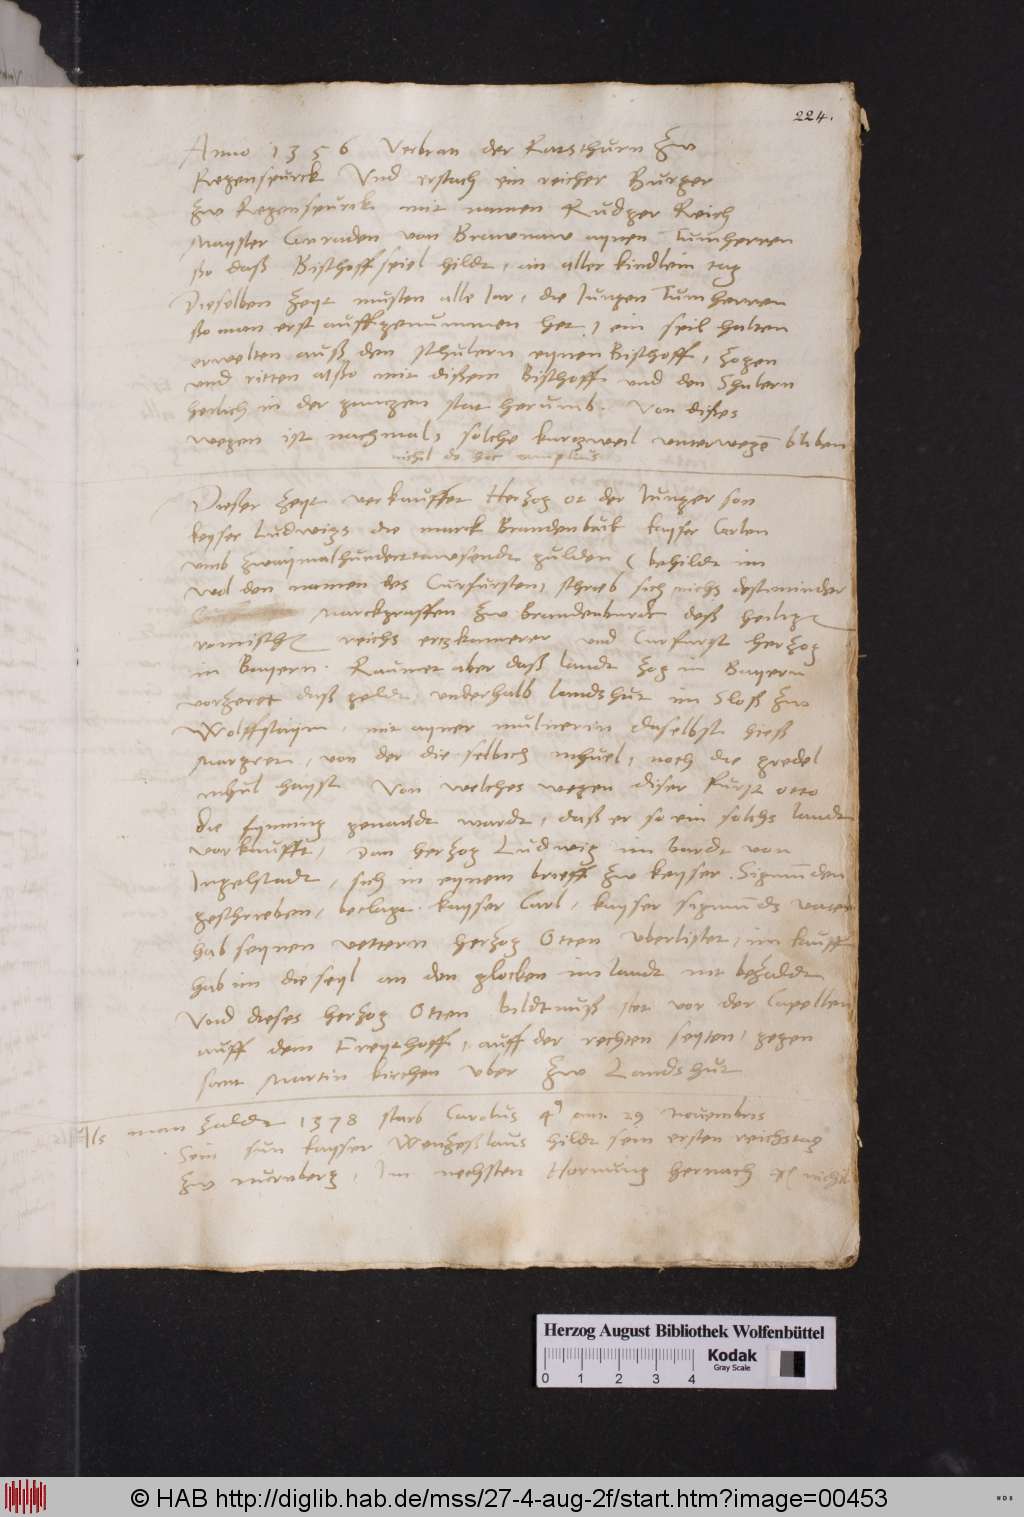 224.
Anno 1356 Verbran der Ratsthurn zw
Regenspurck Und erstach ein reicher Burger
zw Regenspurck mit namen Rudger Reich
Mayster Conraden von Brawnaw aynen Tumherren
ßo daß Bischoff spiel hildt, an aller kindlein tag
Dieselben zeyt musten alle Jar, die Jungen Tumherren
ßo man erst auffgenummen het, ein spil halten
erwelten auß den schulern eynen Bischoff, zogen
und ritten alßo mit dißem Bischoff und den Shulern
herlich in der gantzen stat herumb. Von dißes
wegen ist nachmals solche kurzweil unterwegē bliben
nichil de hoc amplius
Dießer zeyt verkauffet Herzog ot der Junger son
keyser Ludwigs die marck Brandenburk kayser Carlen
umb zwaymalhunderttawsendt gulden, behildt im
wol den namen des Curfursten, schreib sich nichs destminder
Marckgraffen zw Brandenburck deß heilign
romischn reichs ertzkamerer und Curfurst herzog
in Bayern. Raumet aber daß landt zog in Bayern
vorzeret daß geldt underhalb landshut im Sloß zw
Wolffstayn, mit ayner mulnerin daselbst hieß
Margret, von der die selbich mhuel, noch die gredel
mhul hayst. Von welches wegen diser furst otto
die fynning genandt wardt, daß er so ein solchs landt
vorkaufft, Dan herzog Ludwig im bardt von
Ingelstadt, sich in eynem brieff zw keyser. Sigmunden
geschrieben, beclagt. kayser Carl, kayser sigmunds vater
hab seynen vettern herzog Otten uberlistet, im kauff
hab im die seyl an den glocken im landt nit bezaldt
Vnd dieses herzog Otten bildtnuß stet vor der Capellen
auff dem Freythoff, auff der rechten seyten, gegen
sant Martin kirchen uber zw Landshut
Als man zaldt 1378 starb Carolus 4 am 29 Novembris
Sein sun kayser Wenzeßlaus hildt sein ersten reichstag
zw nurnberg, Im nechsten Hornung hernach nichil
Herzog August Bibliothek Wolfenbüttel
Kodak
Gray Scale
0 1 2 3 4
© HAB http://diglib.hab.de/mss/27-4-aug-2f/start.htm?image=00453